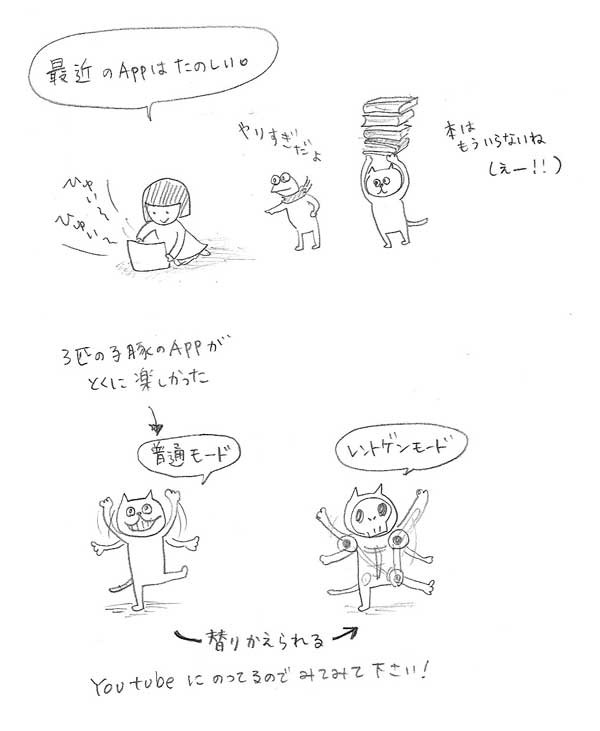 最近のAppはたのしい。
やりすぎだよ
本は
もういらないね
(えー!!)
ひゅい〜
ひゅい〜
3匹の子豚のAppが
とくに楽しかった
普通モード
レントゲンモード
替りかえられる
YouTubeにのってるのでみてみて下さい!